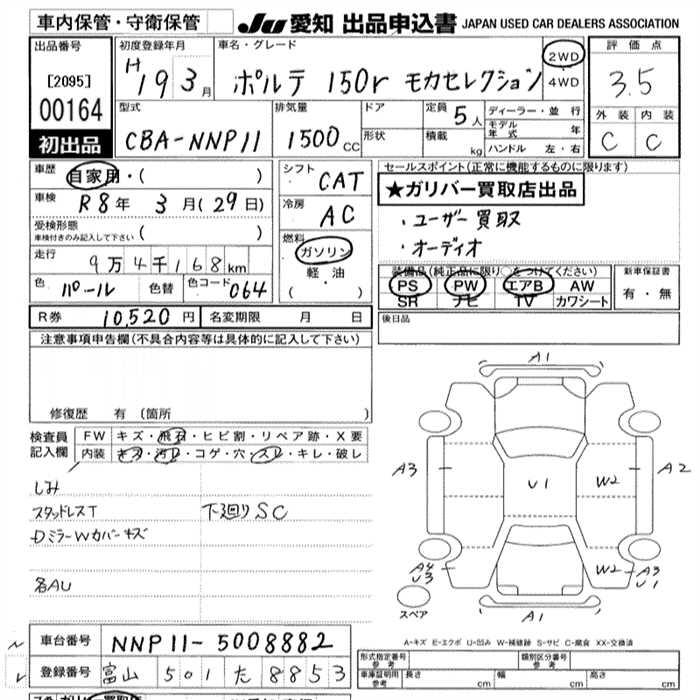 車内保管・守衛保管 JU 愛知 出品申込書 JAPAN USED CAR DEALERS ASSOCIATION
出品番号 [2095] 00164 初出品
初度登録年月 H19 3月
車名・グレード ポルテ 150r モカセレクション 2WD・4WD
評価点 3.5
外装 C 内装 C
型式 CBA-NNP11
排気量 1500cc
ドア 形状
定員 5人 積載 kg
ディーラー・並行
モデル年式 年
ハンドル 左・右
車歴 自家用・( )
車検 R8年 3月(29日)
受検形態 車検付きのみ記入して下さい ( )
走行 9万4千168km
色 パール 色替 色コード 064
シフト CAT
冷房 AC
燃料 ガソリン 軽・油 ( )
セールスポイント(正常に機能するものに限ります)
★ガリバー買取店出品
・ユーザー買取
・オーディオ
装備品(純正品に限り○をつけてください)
PS PW エアB AW
SR ナビ TV カワシート
新車保証書 有・無
後日品
R券 10,520円 名変期限 月 日
注意事項申告欄(不具合内容等は具体的に記入して下さい)
修復歴 有 (箇所 )
検査員記入欄
FW キズ・飛石・ヒビ割・リペア跡・X要
内装 キズ・汚レ・コゲ・穴・スレ・キレ・破レ
しみ
スタッドレスT 下廻りSC
DミラーWカバーキズ
各AU
A1
A3 U1 W2 A2
A4 U3 W2 A3 U1
A1
スペア
A-キズ E-エクボ U-凹み W-補修跡 S-サビ C-腐食 XX-交換済
車台番号 NNP11-5008882
登録番号 富山 501 た 8853
型式指定番号 参考
類別区分番号 参考
車庫証明用 参考 長さ cm 幅 cm 高さ cm